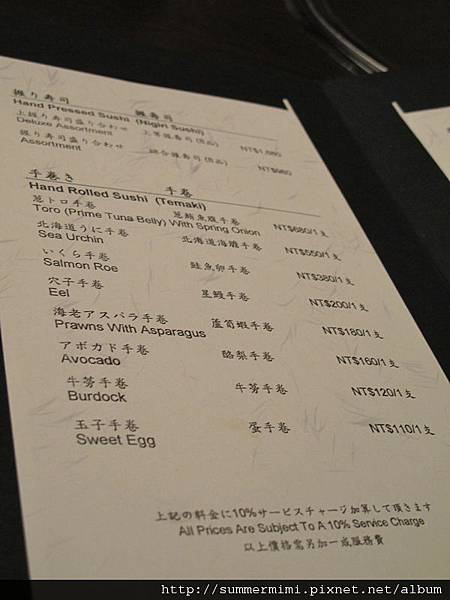 握り寿司 握壽司
Hand Pressed Sushi (Nigiri Sushi)
上握り寿司盛り合わせ 上等握壽司
Deluxe Assortment NT$1,080
握り寿司盛り合わせ 綜合握壽司
Assortment NT$680
手巻き 手卷
Hand Rolled Sushi (Temaki)
葱トロ手卷 葱鮪魚腹手卷
Toro (Prime Tuna Belly) With Spring Onion NT$680/1支
北海道うに手卷 北海道海膽手卷
Sea Urchin NT$550/1支
いくら手卷 鮭魚卵手卷
Salmon Roe NT$380/1支
穴子手卷 星鰻手卷
Eel NT$200/1支
海老アスパラ手卷 蘆筍蝦手卷
Prawns With Asparagus NT$180/1支
アボカド手卷 酪梨手卷
Avocado NT$160/1支
牛蒡手卷 牛蒡手卷
Burdock NT$120/1支
玉子手卷 蛋手卷
Sweet Egg NT$110/1支
上記の料金に10%サービスチャージ加算して頂きます
All Prices Are Subject To A 10% Service Charge
以上價格需另加一成服務費
http://summermimi.pixnet.net/album